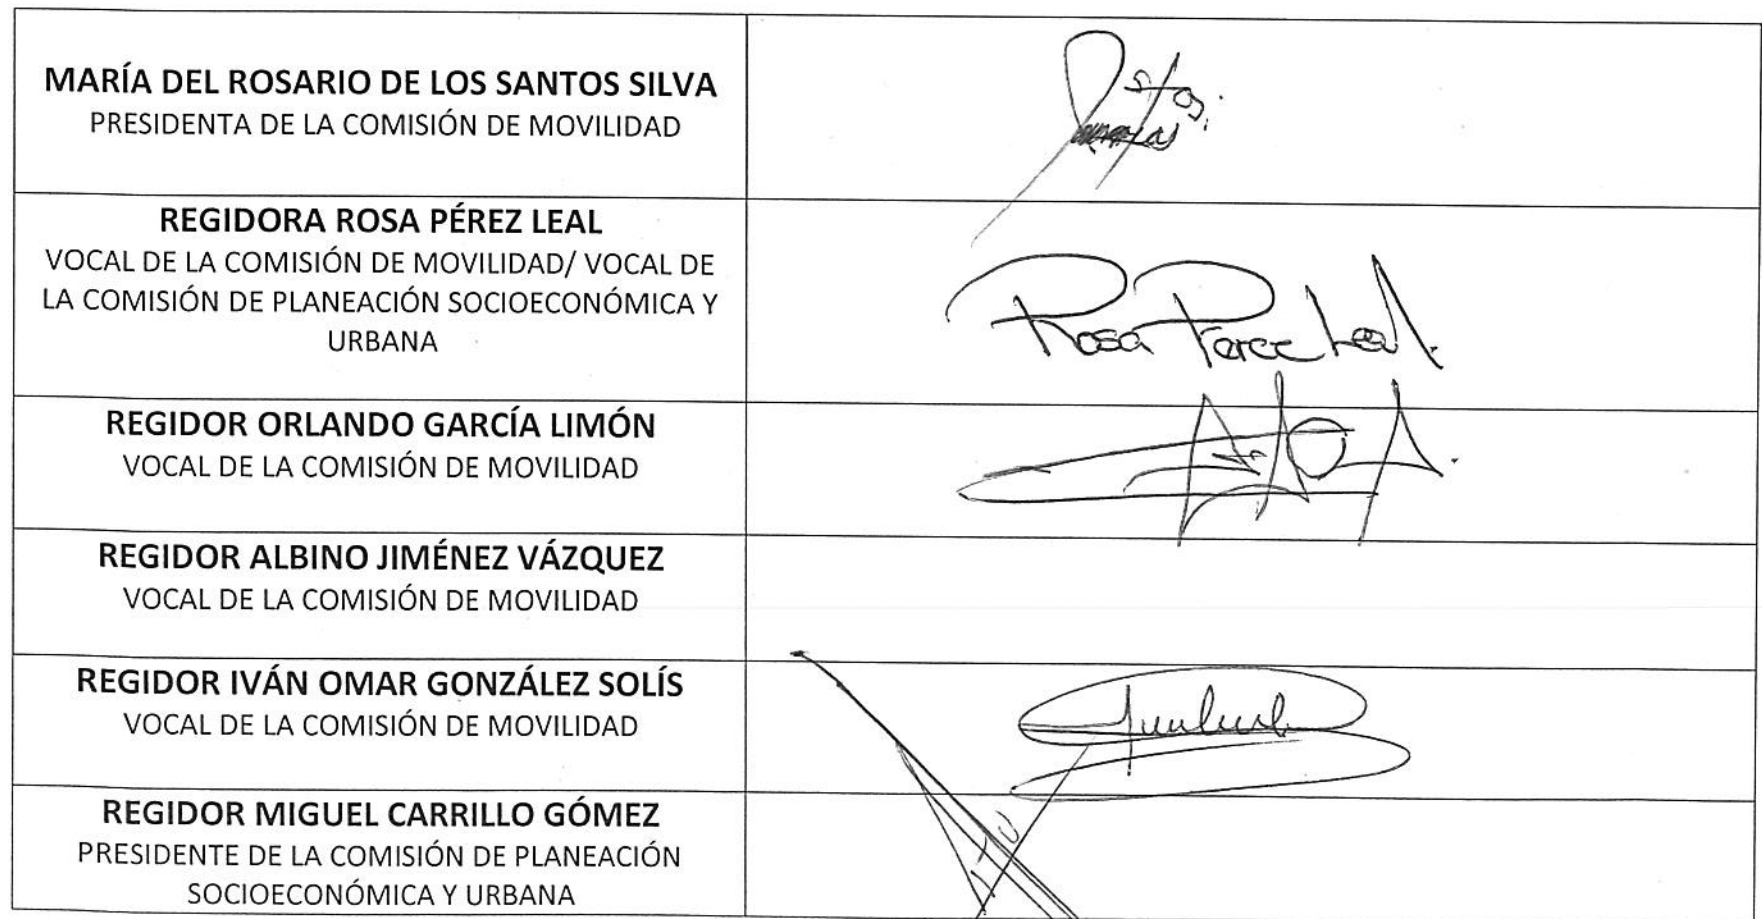 MARÍA DEL ROSARIO DE LOS SANTOS SILVA
PRESIDENTA DE LA COMISIÓN DE MOVILIDAD
REGIDORA ROSA PÉREZ LEAL
VOCAL DE LA COMISIÓN DE MOVILIDAD/ VOCAL DE
LA COMISIÓN DE PLANEACIÓN SOCIOECONÓMICA Y
URBANA
Rosa Perez Leal.
REGIDOR ORLANDO GARCÍA LIMÓN
VOCAL DE LA COMISIÓN DE MOVILIDAD
REGIDOR ALBINO JIMÉNEZ VÁZQUEZ
VOCAL DE LA COMISIÓN DE MOVILIDAD
REGIDOR IVÁN OMAR GONZÁLEZ SOLÍS
VOCAL DE LA COMISIÓN DE MOVILIDAD
REGIDOR MIGUEL CARRILLO GÓMEZ
PRESIDENTE DE LA COMISIÓN DE PLANEACIÓN
SOCIOECONÓMICA Y URBANA